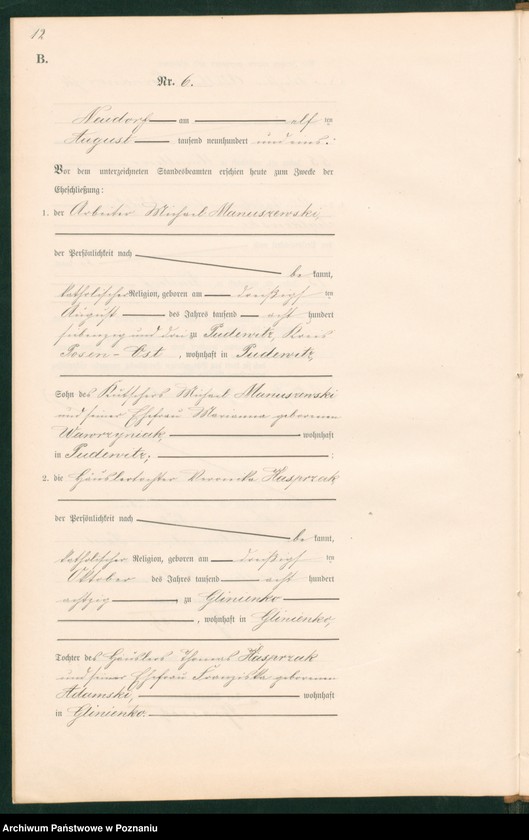 12
B.
Nr. 6.
Neudorf am elf ten
August tausend neunhundert und eins.
Vor dem unterzeichneten Standesbeamten erschien heute zum Zwecke der
Eheschließung:
1. der Arbeiter Michael Manuszewski,
der Persönlichkeit nach
be kannt,
katholischer Religion, geboren am dreißigs ten
August des Jahres tausend acht hundert
siebenzig und drei zu Pudewitz, Kreis
Posen-Ost, wohnhaft in Pudewitz,
Sohn des Kutschers Michael Manuszewski
und seiner Ehefrau Marianna geborenen
Wawrzyniak, wohnhaft
in Pudewitz;
2. die Häuslertochter Veronika Kasprzak
der Persönlichkeit nach
be kannt,
katholischer Religion, geboren am dreißigs ten
Oktober des Jahres tausend acht hundert
achtzig, zu Glinienko
, wohnhaft in Glinienko,
Tochter des Häuslers Thomas Kasprzak
und seiner Ehefrau Franziska geborenen
Adamski, wohnhaft
in Glinienko.
Archiwum Państwowe w Poznaniu